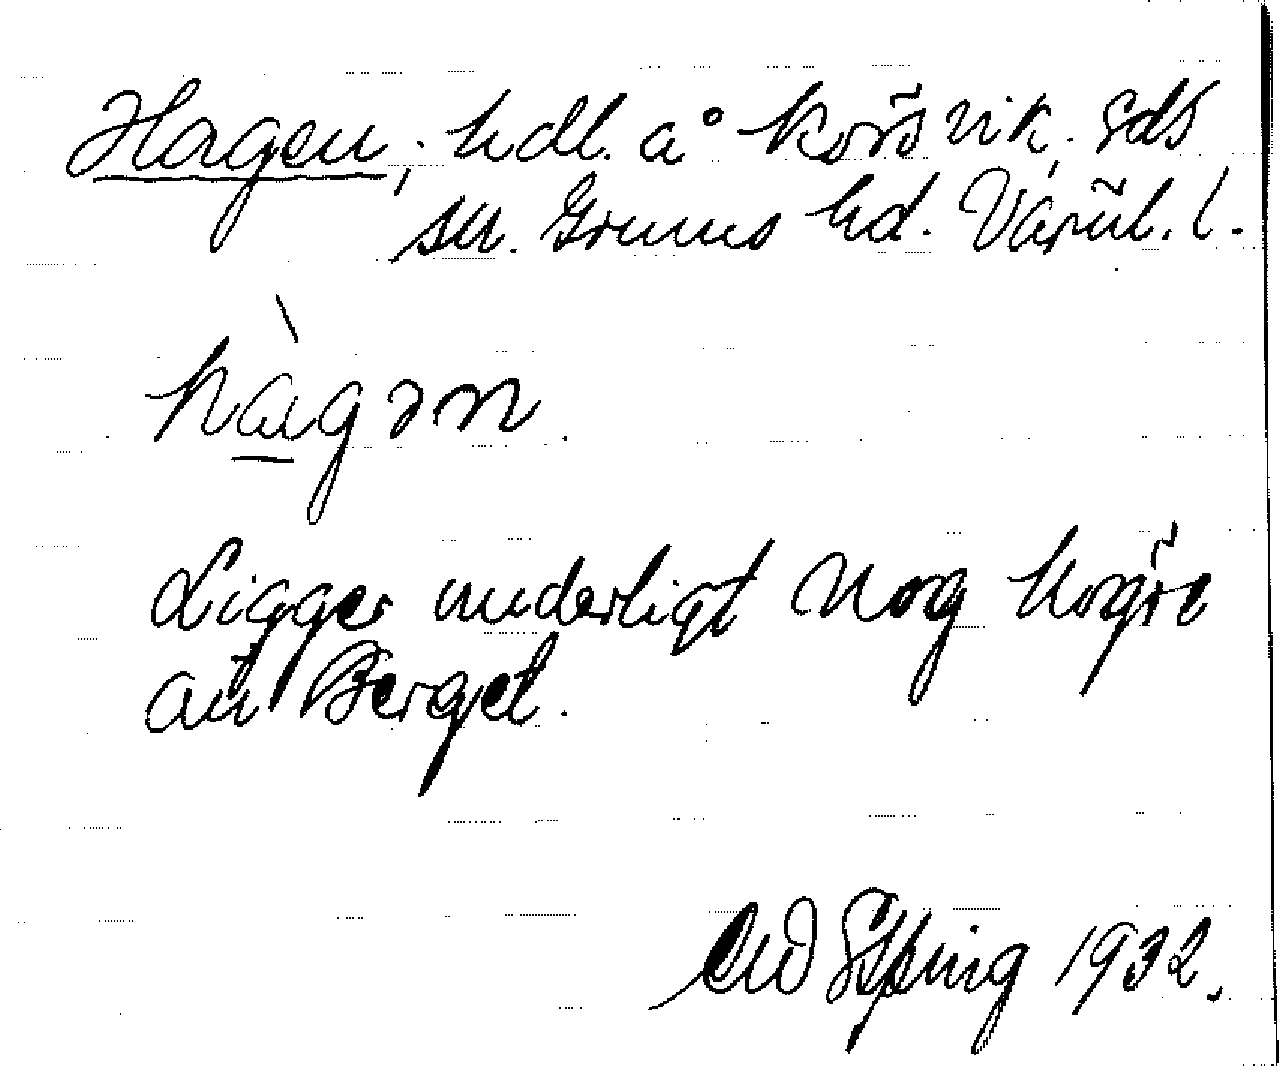 Hagen, hdl. å Korsvik, gds
sn. Grums hd. Värml. l.
hàgən.
Ligger underligt nog högre
än Berget.
1932.